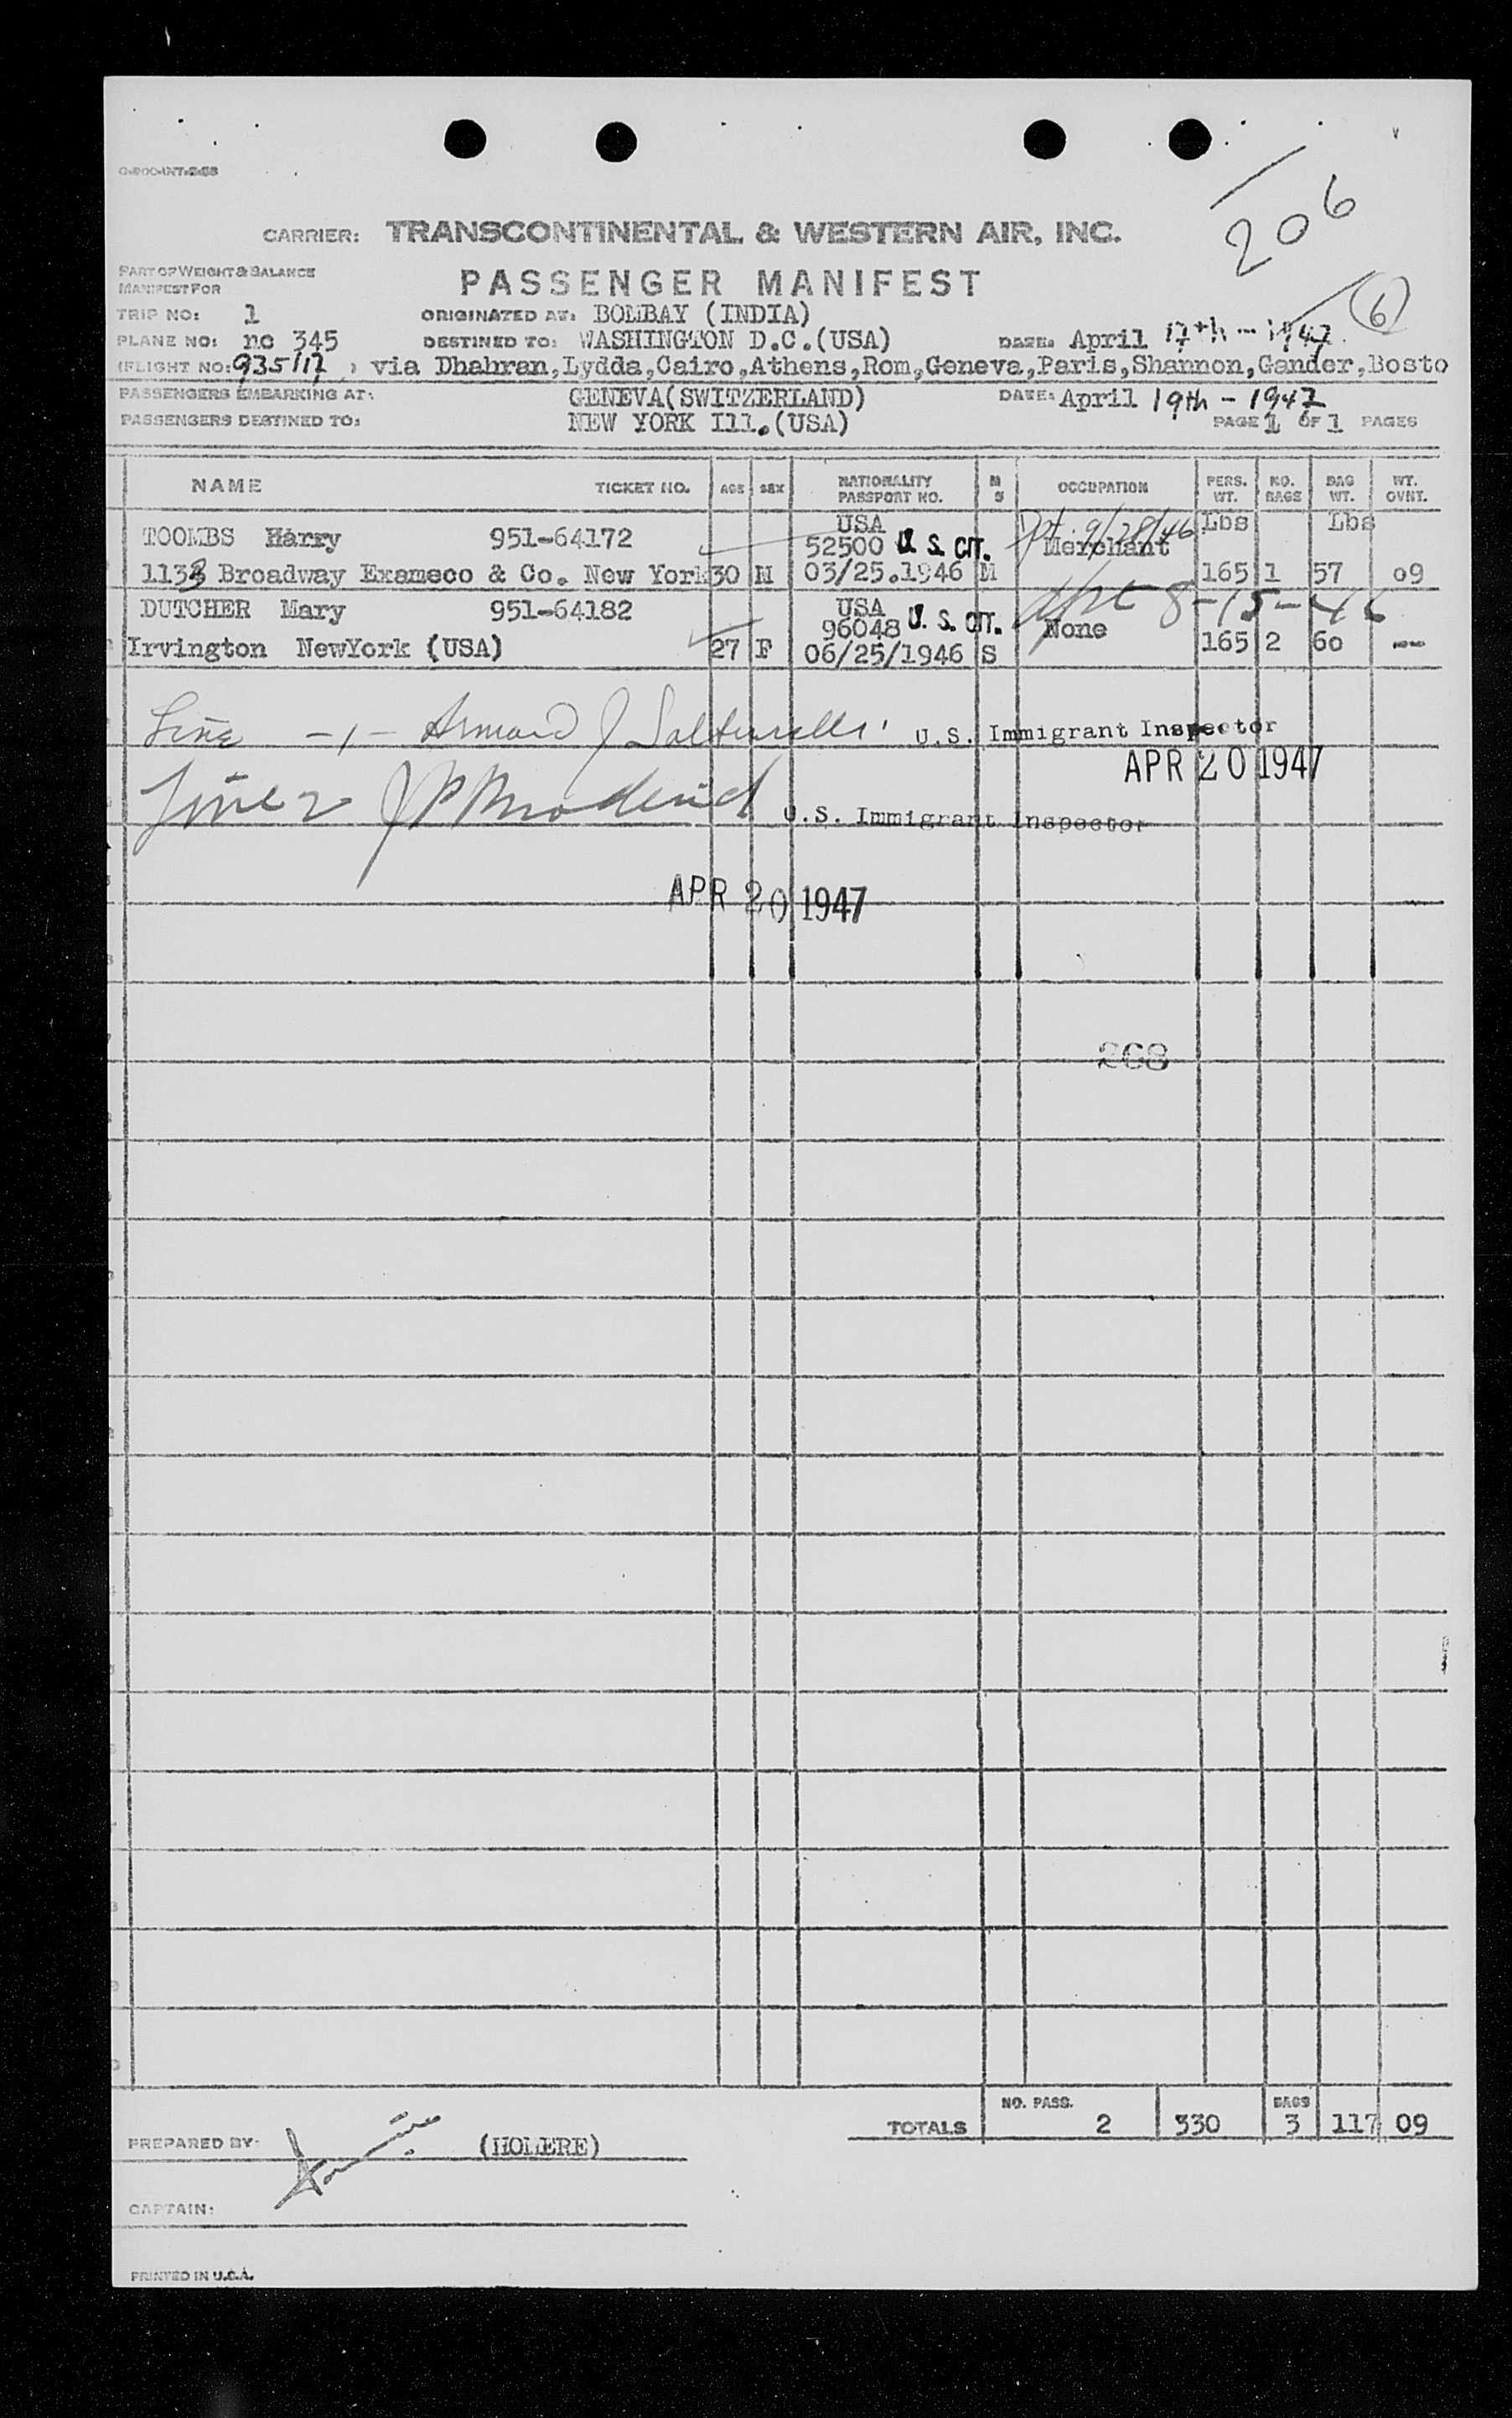 206
CARRIER: TRANSCONTINENTAL & WESTERN AIR, INC.
PART OF WEIGHT & BALANCE
MANIFEST FOR
PASSENGER MANIFEST
6
TRIP NO: 1 ORIGINATED AT: BOMBAY (INDIA)
PLANE NO: nc 345 DESTINED TO: WASHINGTON D.C.(USA) DATE: April 17th - 1947.
(FLIGHT NO: 935/17 ) via Dhahran,Lydda,Cairo,Athens,Rom,Geneva,Paris,Shannon,Gander,Bosto
PASSENGERS EMBARKING AT: GENEVA(SWITZERLAND) DATE: April 19th - 1947
PASSENGERS DESTINED TO: NEW YORK Ill.(USA) PAGE 1 OF 1 PAGES
NAME TICKET NO. AGE SEX NATIONALITY PASSPORT NO. M S OCCUPATION PERS. WT. NO. BAGS BAG WT. WT. OVNT.
USA 9/28/46 Lbs Lbs
TOOMBS Harry 951-64172 52500 U. S. CIT. Merchant
1133 Broadway Exameco & Co. New York 30 M 03/25.1946 M 165 1 57 09
DUTCHER Mary 951-64182 USA 96048 U. S. CIT. 8-15-46 None
Irvington NewYork (USA) 27 F 06/25/1946 S 165 2 60 --
Line -1- Armand J U.S. Immigrant Inspector
APR 20 1947
Line 2 U.S. Immigrant Inspector
APR 20 1947
268
TOTALS NO. PASS. 2 330 BAGS 3 117 09
PREPARED BY: (HOMERE)
CAPTAIN:
PRINTED IN U.S.A.